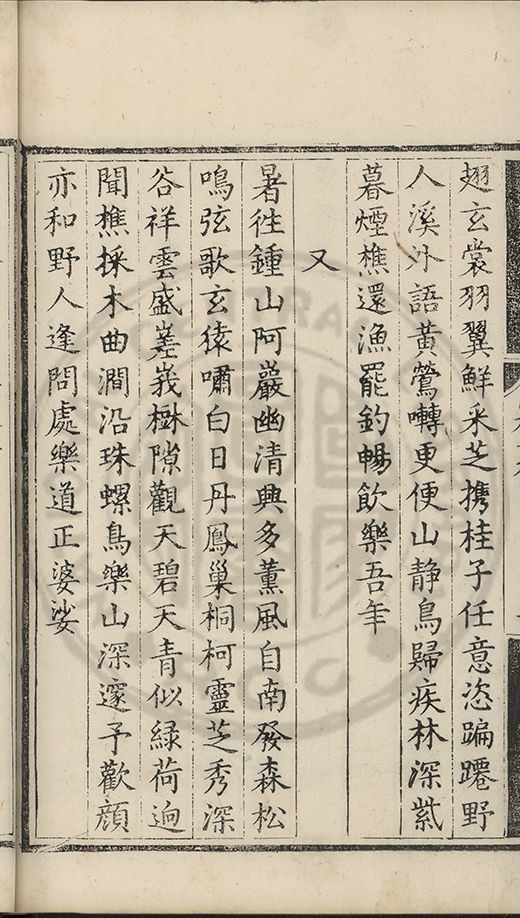 翅玄裳羽翼鮮采芝携桂子任意恣蹁躚野
人溪外語黃鶯囀更便山静鳥歸疾林深紫
暮煙樵還漁罷釣暢飲樂吾年
又
暑徃鍾山阿巖幽清興多薰風自南發森松
鳴弦歌玄猿嘯白日丹鳳巢桐柯靈芝秀深
谷祥雲盛嵳峩樹隙觀天碧天青似綠荷逈
聞樵採木曲澗沿珠螺鳥樂山深邃予歡顔
亦和野人逢問處樂道正婆娑